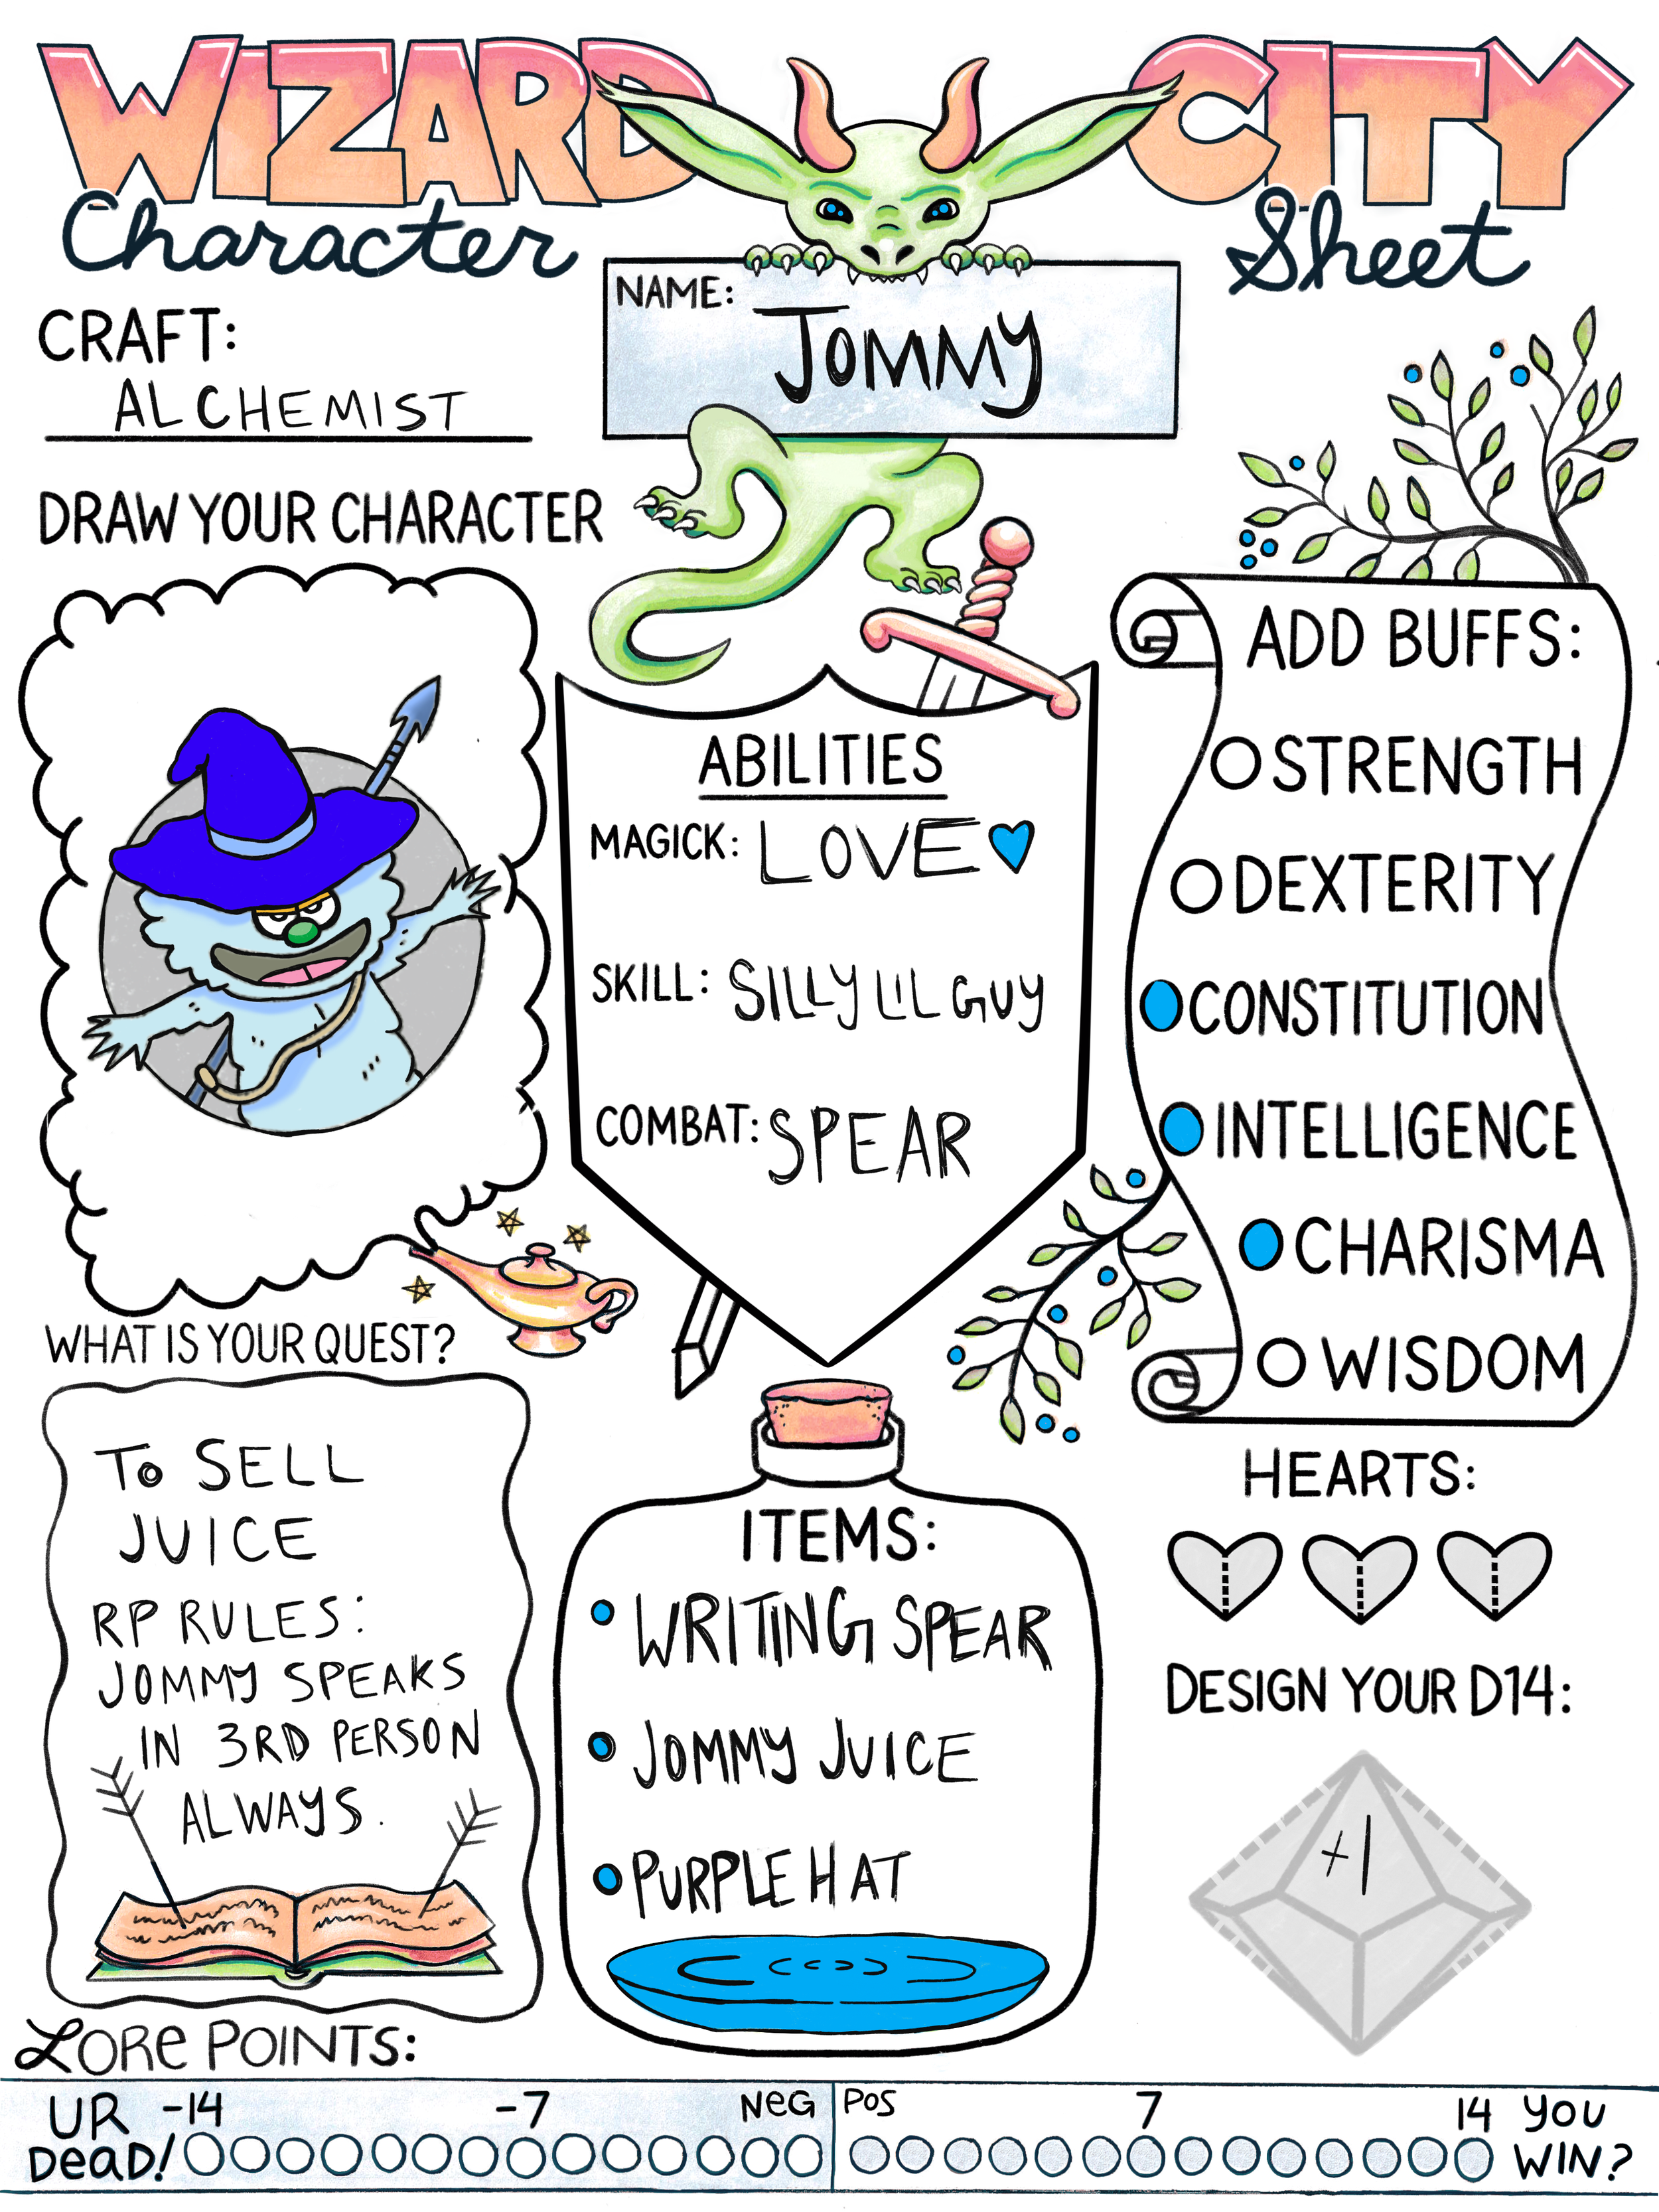 WIZARD CITY
Character Sheet
NAME:
JOMMY
CRAFT:
ALCHEMIST
DRAW YOUR CHARACTER
ABILITIES
MAGICK: LOVE
SKILL: SILLY LIL GUY
COMBAT: SPEAR
ADD BUFFS:
STRENGTH
DEXTERITY
CONSTITUTION
INTELLIGENCE
CHARISMA
WISDOM
WHAT IS YOUR QUEST?
TO SELL
JUICE
RP RULES:
JOMMY SPEAKS
IN 3RD PERSON
ALWAYS.
ITEMS:
WRITING SPEAR
JOMMY JUICE
PURPLE HAT
HEARTS:
DESIGN YOUR D14:
+1
LORe POINTS:
UR -14 -7 NeG POS 7 14 YOU
DeaD! WIN?